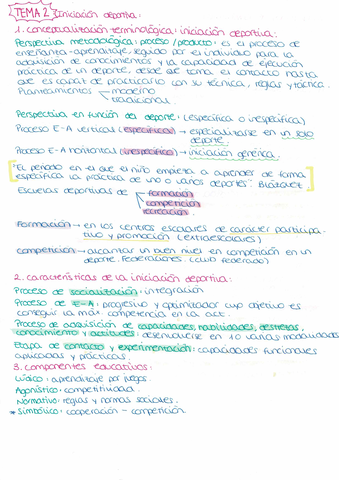 TEMA 2: Iniciación deportiva:
1. conceptualización terminológica: iniciación deportiva:
Perspectiva metodológica: proceso/producto: es el proceso de
enseñanza-aprendizaje, seguido por el individuo para la
adquisición de conocimientos y la capacidad de ejecución
práctica de un deporte, desde que toma el contacto hasta
que es capaz de practicarlo con su técnica, reglas y táctica.
Planteamientos moderno
tradicional.
Perspectiva en función del deporte: (específica o inespecífica)
Proceso E-A verticales (específicos) → especializarse en un solo
deporte.
Proceso E-A horizontal (inespecífico) → iniciación genérica.
"El período en el que el niño empieza a aprender de forma
específica la práctica de uno o varios deportes". Blázquez
Escuelas deportivas de formación
competición
recreación.
Formación → en los centros escolares de carácter participa-
tivo y promoción (extraescolares)
competición → alcanzar un buen nivel en competición en un
deporte. Federaciones. (club federado)
2. características de la iniciación deportiva:
Proceso de socialización: integración
Proceso de E-A: progresivo y optimizador cuyo objetivo es
conseguir la máx. competencia en la act.
Proceso de adquisición de capacidades, habilidades, destrezas,
conocimiento y actitudes: desenvolverse en 1 o varias modalidades
Etapa de contacto y experimentación: capacidades funcionales
aplicadas y prácticas.
3. componentes educativos:
Lúdico: aprendizaje por juegos.
Agonístico: competitividad.
Normativo: reglas y normas sociales.
* Simbólico: cooperación - competición.